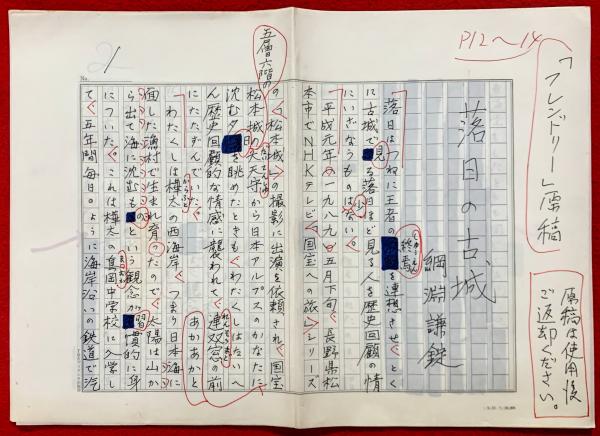 「フレンドリー」原稿
原稿は使用後
ご返却ください。
P12〜14
落日の古城
綱淵謙錠
落日はつねに王者の終焉を連想させ、とく
しゅうえん
に古城で見る落日ほど見る人を歴史回顧の情
にいざなうものは少ない。
平成元年(一九八九)五月下旬、長野県松
本市でNHKテレビ『国宝への旅』シリーズ
の〈松本城〉の撮影に出演を依頼され、国宝
五層六階の
松本城の天守から日本アルプスのかなたに
沈む夕日を眺めたときも、わたくしは
ん歴史回顧的な情感に襲われて、の前
にたたずんでいた。
あかあかと
わたくしは樺太の西海岸、つまり日本海に
からふと
面した漁村で生まれ育ったので、太陽は山か
ら出て海に沈むもの、という観念が習慣的に身
についた。これは樺太の真岡中学校に入学し
まおか
て、五年間毎日のように海岸沿いの鉄道で汽
No.
1